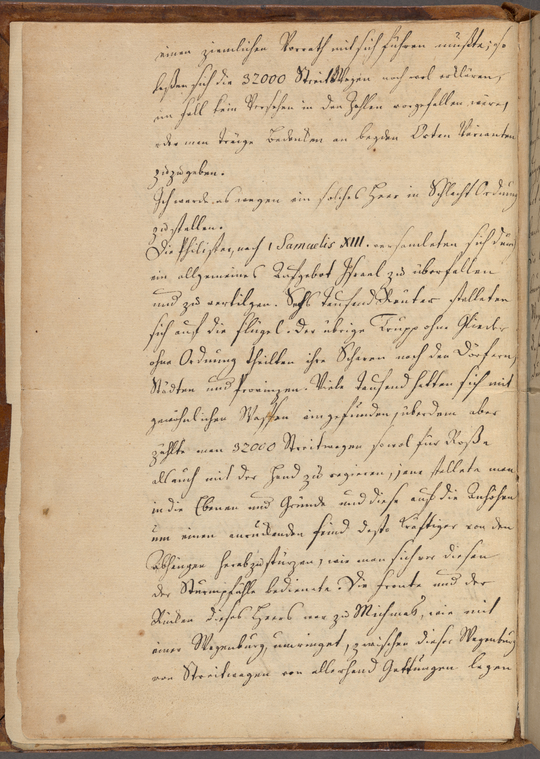 einen ziemlichen Vorrath mit sich führen mußte; so
ließen sich die 32000 StreitWagen noch wol erklären,
im fall kein Versehen in den Zahlen vorgefallen wäre,
oder man trüge Bedenken an beyden Orten Varianten
zuzugeben.
Ich werde es wagen ein solches Heer in Schlacht Ordnung
zu stellen.
Die Philister, nach 1 Samuelis XIII. versamleten sich durch
ein allgemeines Aufgebot Israel zu überfallen
und zu vertilgen. Sechs tausend Reuter stelleten
sich auf die Flügel. der übrige Trupp ohne Glieder
ohne Ordnung theilten ihre Scharen nach den Dörfern,
Städten und Provinzen. Viele tausend hatten sich mit
gewöhnlichen Waffen eingefunden, überdem aber
zählte man 32000 Streitwagen sowol für Roße
als auch mit der Hand zu regieren, jene stellete man
in die Ebenen und Gründe und diese auf die Anhöhen
um einen anrückenden feind desto kräftiger von den
Abhängen herabzustürzen, wie man sich vor diesen
der Sturmpfähle bediente. Die fronte und der
Rücken dieses Heers war zu Michmas, wie mit
einer Wagenburg umringet, zwischen dieser Wagenburg
von Streitwagen von allerhand Gattungen lagen